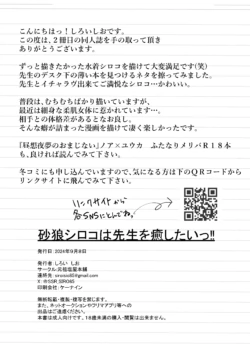 こんにちはっ！しろいしおです。
この度は、２冊目の同人誌を手の取って頂き
ありがとうございます。
ずっと描きたかった水着シロコを描けて大変満足です(笑)
先生のデスク下の薄い本を見つけるネタを擦ってみました。
先生とイチャラヴ出来てご満悦なシロコ…かわいい。
普段は、むちむちばかり描いていますが、
最近は細身な柔肌女体に惹かれています…
相手との体格差があるとなお良し。
そんな癖が詰まった漫画を描けて凄く楽しかったです。
『昼想夜夢のおまじない』ノア×ユウカ　ふたなりメリバＲ１８本
も、良ければ読んでみて下さい。
冬コミにも申し込んでいますので、気になる方は下のＱＲコードから
リンクサイトに飛んでみて下さい。
リンクサイトから
各SNSにとんでね。
砂狼シロコは先生を癒したいっ!!
発行日 : 2024年9月8日
発行者 : しろい しお
印刷会社 : ケーナイン
無断転載・複製・複写を禁じます。
また、ネットオークションやフリマアプリ等への
出品はご遠慮ください。
本書は成人向けです。18歳未満の購入・閲覧は出来ません。